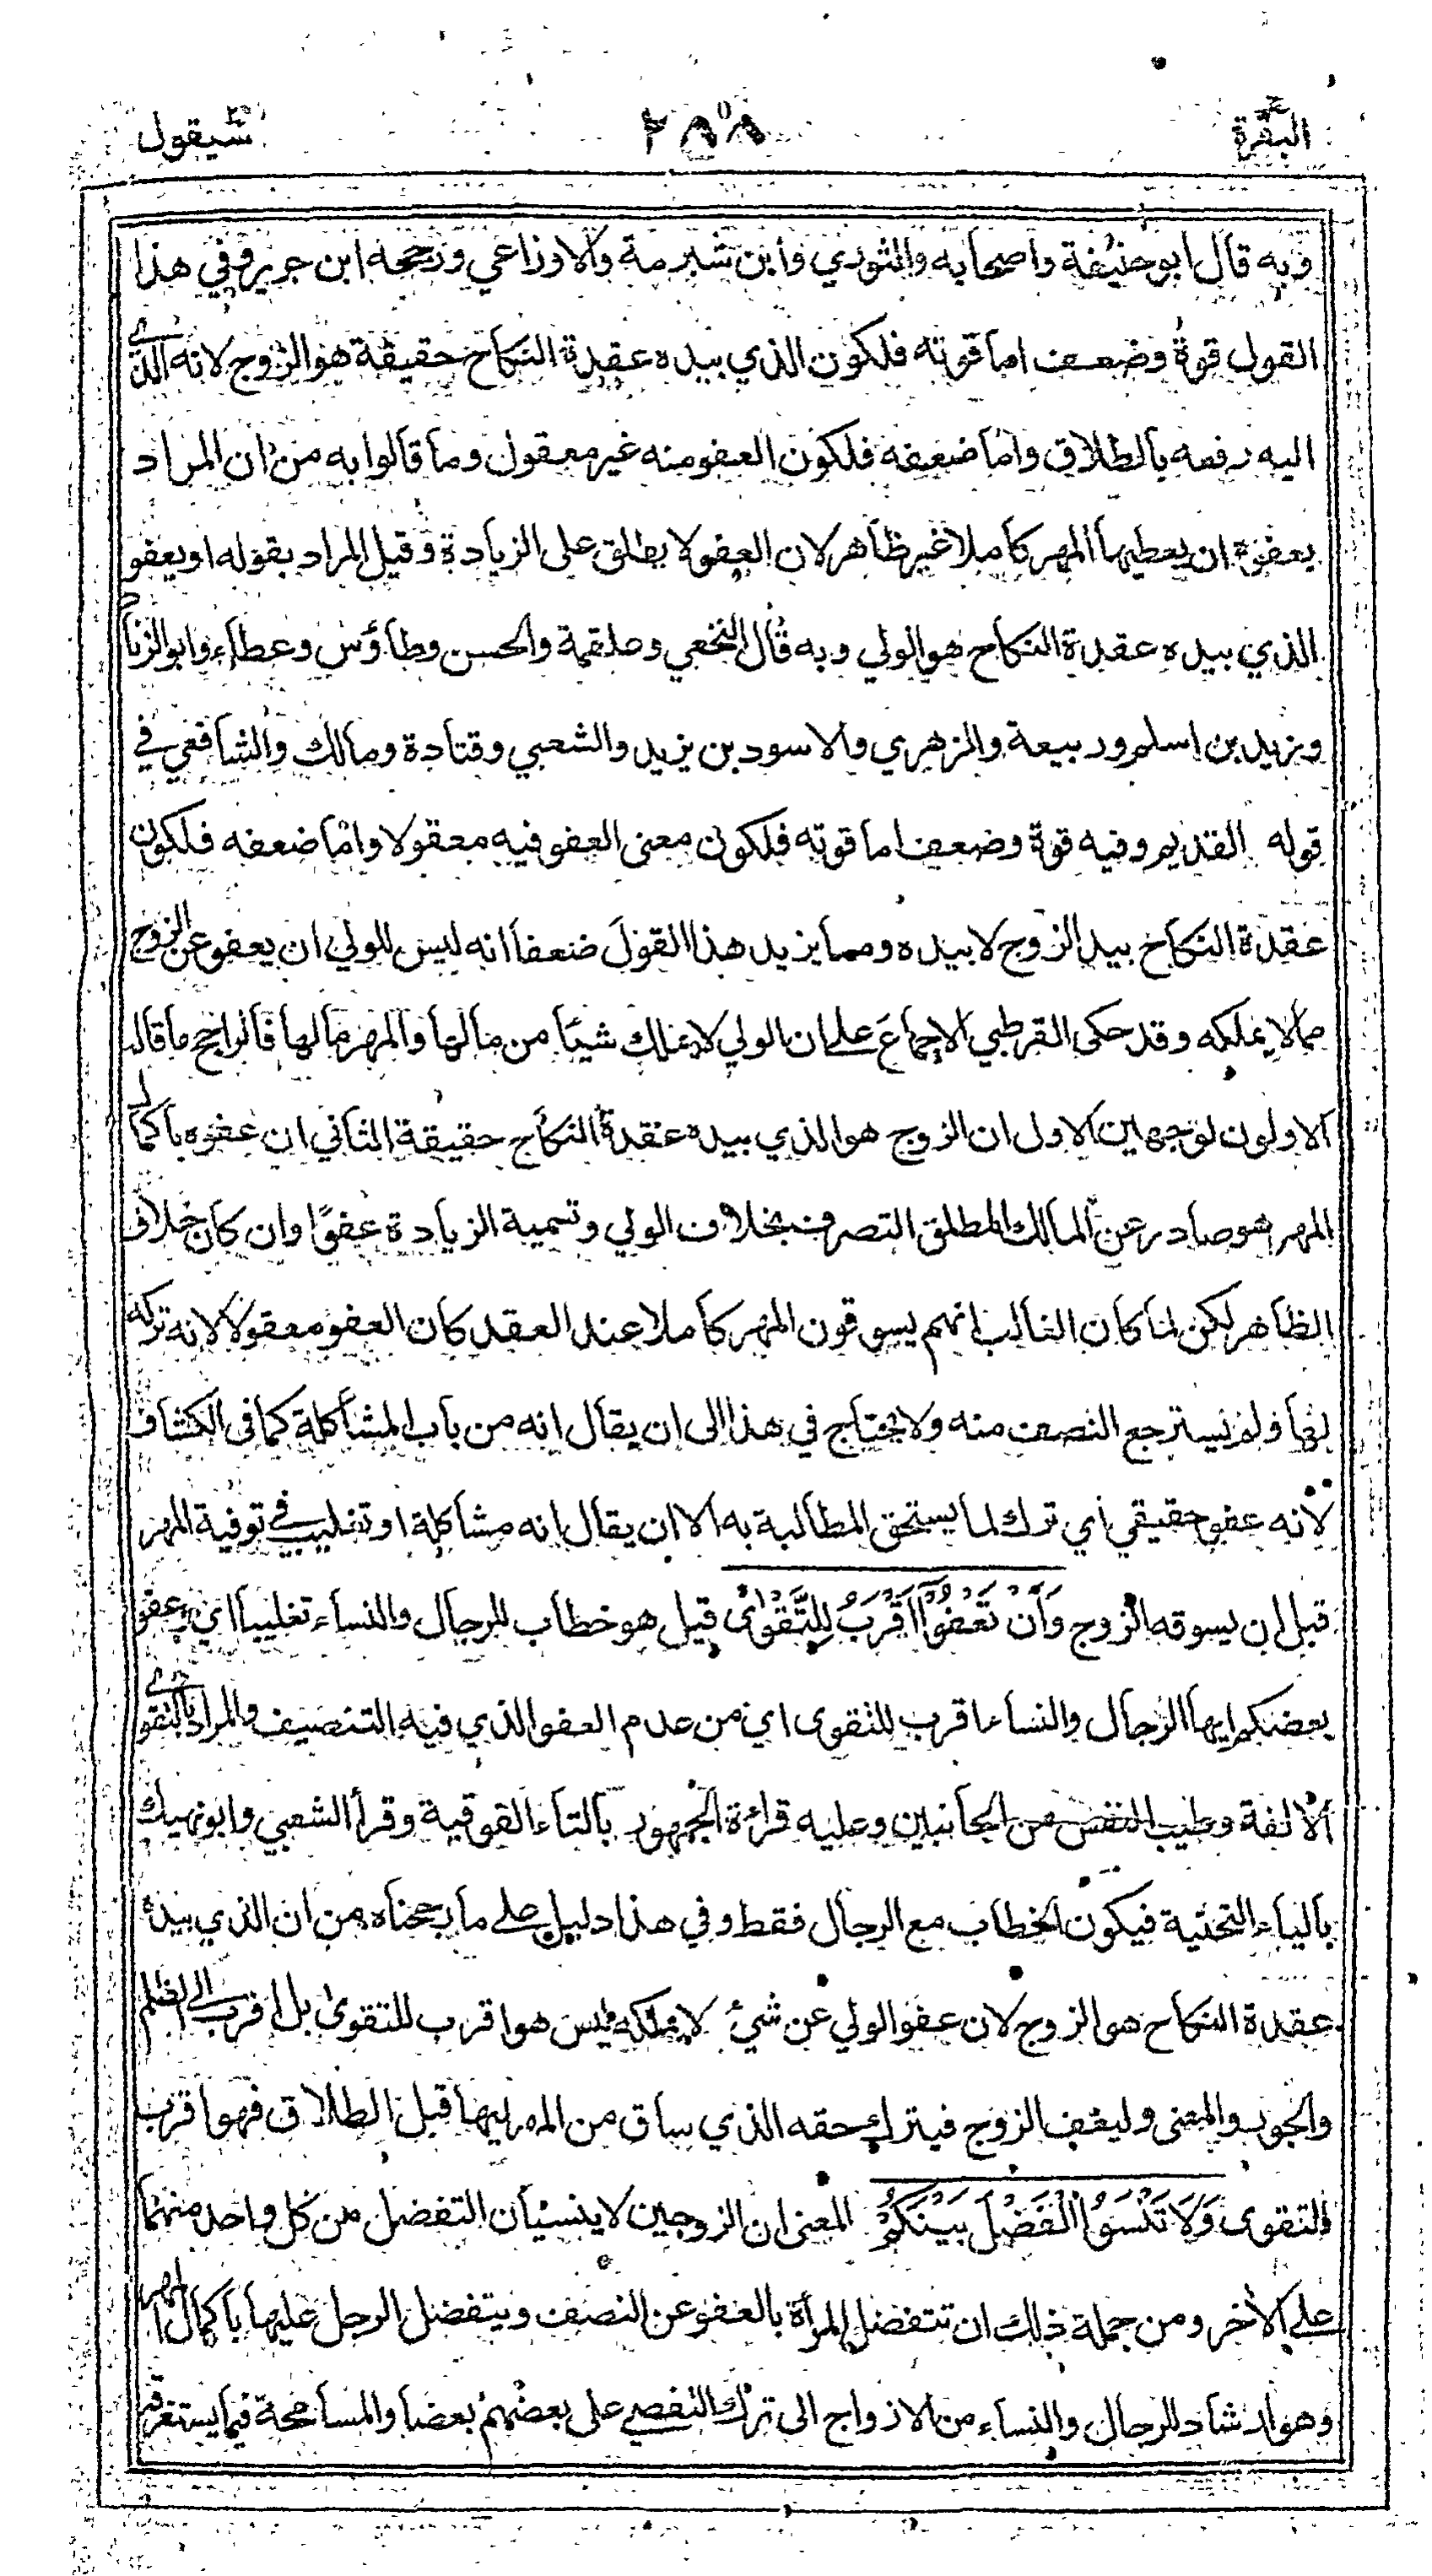 البقرة ٢٥٨ سيقول
وبه قال ابو حنيفة واصحابه والثوري وابن شبرمة والاوزاعي ورجحه ابن جرير وفي هذا
القول قوة وضعف اما قوته فلكون الذي بيده عقدة النكاح حقيقة هو الزوج لانه الذي
اليه رفعه بالطلاق واما ضعفه فلكون العفو منه غير معقول وما قالوا به من ان المراد
بعفوه ان يعطيها المهر كاملا غير ظاهر لان العفو لا يطلق على الزيادة وقيل المراد بقوله او يعفو
الذي بيده عقدة النكاح هو الولي وبه قال النخعي وعلقمة والحسن وطاؤس وعطاء وابو الزناد
وزيد بن اسلم وربيعة والزهري والاسود بن يزيد والشعبي وقتادة ومالك والشافعي في
قوله القديم وفيه قوة وضعف اما قوته فلكون معنى العفو فيه معقولا واما ضعفه فلكون
عقدة النكاح بيد الزوج لا بيده ومما يزيد هذا القول ضعفا انه ليس للولي ان يعفو عن الزوج
مما لا يملكه وقد حكى القرطبي الاجماع على ان الولي لا يملك شيئا من مالها والمهر مالها فالراجح ما قاله
الاولون لوجهين الاول ان الزوج هو الذي بيده عقدة النكاح حقيقة الثاني ان عفوه باكمال
المهر هو صادر عن المالك المطلق التصرف بخلاف الولي وتسمية الزيادة عفوًا وان كان خلاف
الظاهر لكن لما كان الغالب انهم يسوقون المهر كاملا عند العقد كان العفو معقولا لانه تركه
لها ولم يسترجع النصف منه ولا يحتاج في هذا الى ان يقال انه من باب المشاكلة كما في الكشاف
لانه عفو حقيقي اي ترك لما يستحق المطالبة به الا ان يقال انه مشاكلة او تغليب في توفية المهر
قبل ان يسوقه الزوج وَاَنْ تَعْفُوْٓا اَقْرَبُ لِلتَّقْوٰى قيل هو خطاب للرجال والنساء تغليبا اي يعفو
بعضكم ايها الرجال والنساء اقرب للتقوى اي من عدم العفو الذي فيه التنصيف والمراد بالتقوى
الالفة وطيب النفس من الجانبين وعليه قراءة الجمهور بالتاء الفوقية وقرأ الشعبي وابو نهيك
بالياء التحتية فيكون الخطاب مع الرجال فقط وفي هذا دليل على ما رجحناه من ان الذي بيده
عقدة النكاح هو الزوج لان عفو الولي عن شيء لا يملكه ليس هو اقرب للتقوى بل اقرب الى الظلم
والجور والمعنى وليعف الزوج فيترك حقه الذي ساق من المهر اليها قبل الطلاق فهو اقرب
للتقوى وَلَا تَنْسَوُا الْفَضْلَ بَيْنَكُمْ المعنى ان الزوجين لا ينسيان التفضل من كل واحد منهما
على الاخر ومن جملة ذلك ان تتفضل المرأة بالعفو عن النصف ويتفضل الرجل عليها باكمال المهر
وهو ارشاد للرجال والنساء من الازواج الى ترك التقصي على بعضهم بعضا والمسامحة فيما يستغرقه